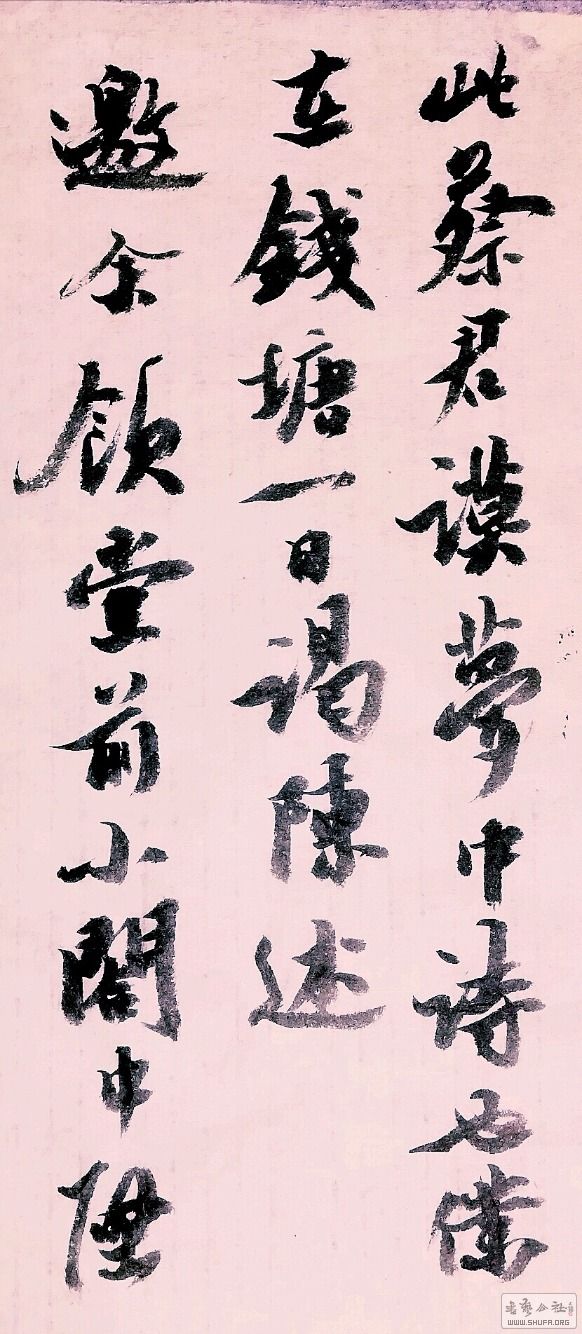 此蔡君謨夢中詩也僕
在錢塘一日謁陳述
邀余飲堂前小閣中
书艺公社
WWW.SHUFA.ORG